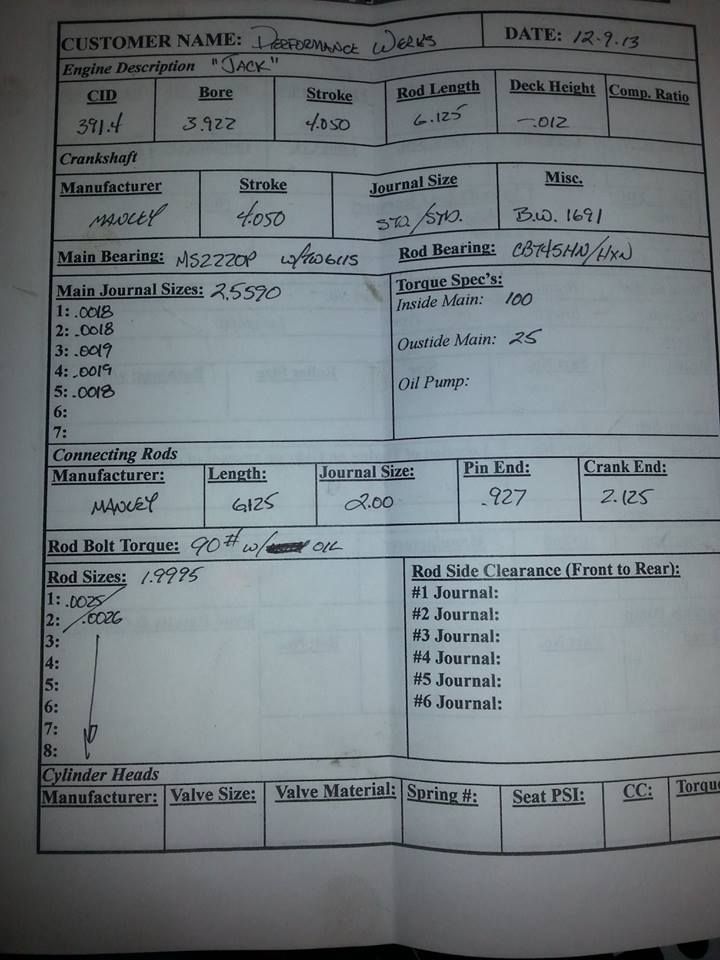 CUSTOMER NAME: PERFORMANCE WERKS DATE: 12-9-13
Engine Description "JACK"
CID Bore Stroke Rod Length Deck Height Comp. Ratio
391.4 3.922 4.050 6.125 -.012
Crankshaft
Manufacturer Stroke Journal Size Misc.
MANLEY 4.050 STD./STD. B.W. 1691
Main Bearing: MS2220P Rod Bearing: CB745HN/HXN
Main Journal Sizes: 2.5590 Torque Spec's:
1: .0018 Inside Main: 100
2: .0018
3: .0019 Oustide Main: 25
4: .0019
5: .0018 Oil Pump:
6:
7:
Connecting Rods
Manufacturer: Length: Journal Size: Pin End: Crank End:
MANLEY 6125 2.00 .927 2.125
Rod Bolt Torque: 90# w/ OIL
Rod Sizes: 1.9995 Rod Side Clearance (Front to Rear):
1: .0025/ #1 Journal:
2: /.0026 #2 Journal:
3: #3 Journal:
4: #4 Journal:
5: #5 Journal:
6: #6 Journal:
7:
8:
Cylinder Heads
Manufacturer: Valve Size: Valve Material: Spring #: Seat PSI: CC: Torque